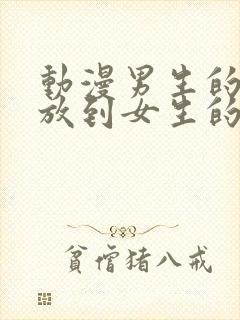 動漫男生的
放到女生的
貧僧猪八戒